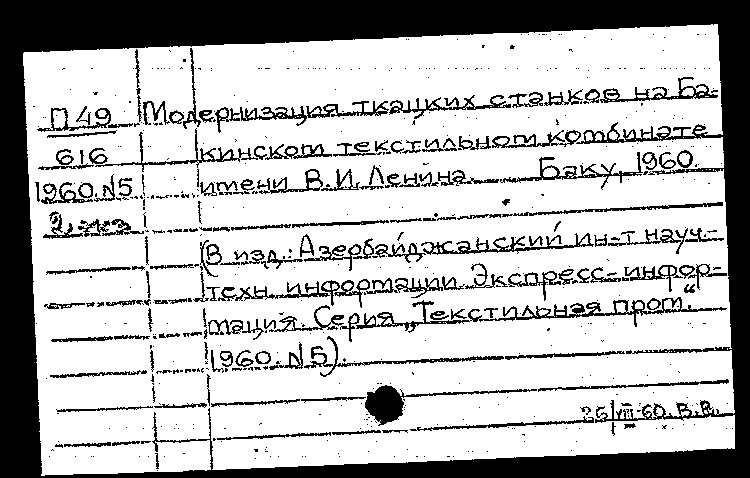 П 49 Модернизация ткацких станков на Ба-
616 кинском текстильном комбинате
1960.N5 имени В.И. Ленина. Баку, 1960.
2 экз
(В изд.: Азербайджанский ин-т науч.-
техн. информации. Экспресс-инфор-
мация. Серия „Текстильная пром."
1960. N5).
26/VIII-60. В.В.